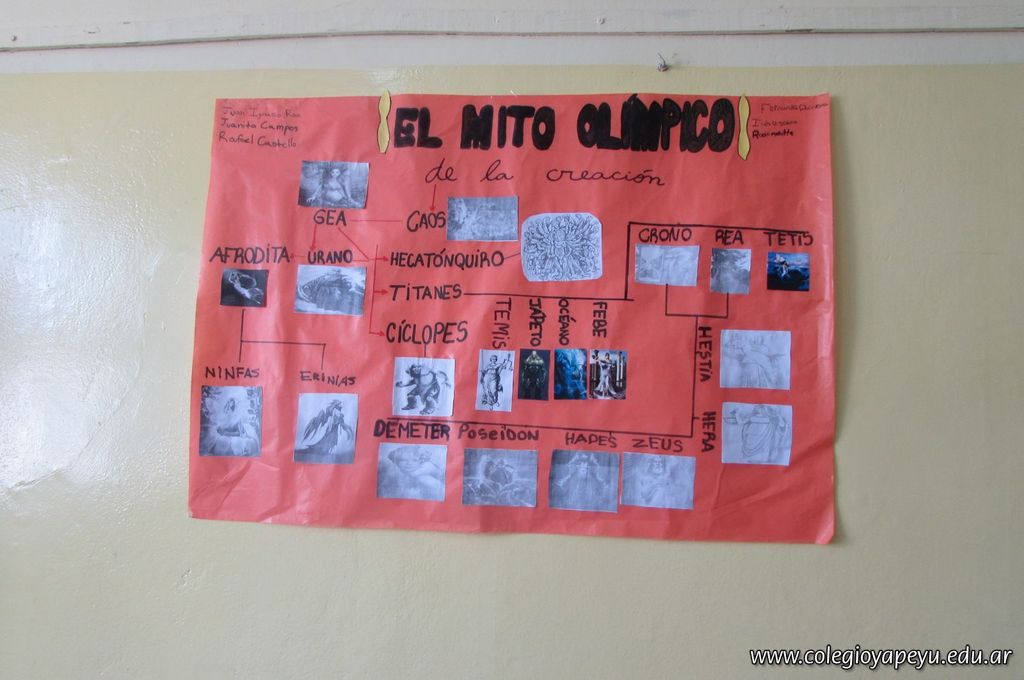 Juanita Campos
Rafael Castello
EL MITO OLÍMPICO
de la creación
GEA
CAOS
AFRODITA
URANO
HECATÓNQUIRO
TITANES
CÍCLOPES
CRONO
REA
TETIS
TEMIS
JAPETO
OCÉANO
FEBE
NINFAS
ERINIAS
HESTIA
HERA
DEMETER
POSEIDON
HADES
ZEUS
www.colegioyapeyu.edu.ar